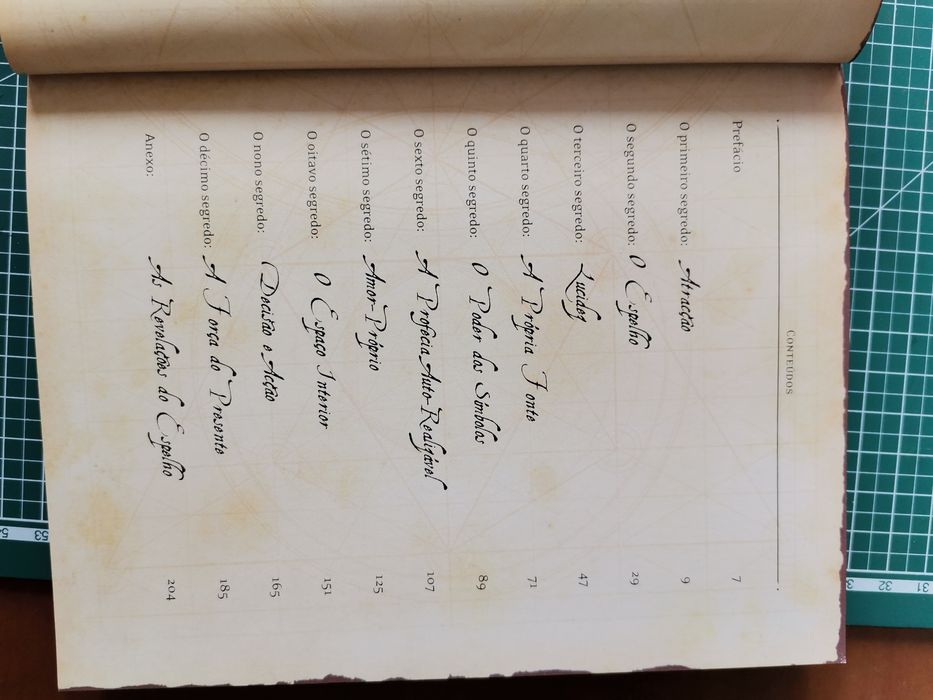 CONTEÚDOS
Prefácio 7
O primeiro segredo: Atracção 9
O segundo segredo: O Espelho 29
O terceiro segredo: Lucidez 47
O quarto segredo: A Própria Fonte 71
O quinto segredo: O Poder dos Símbolos 89
O sexto segredo: A Profecia Auto-Realizável 107
O sétimo segredo: Amor-Próprio 125
O oitavo segredo: O Espaço Interior 151
O nono segredo: Decisão e Acção 165
O décimo segredo: A Força do Presente 185
Anexo: As Revelações do Espelho 204
53
31
32